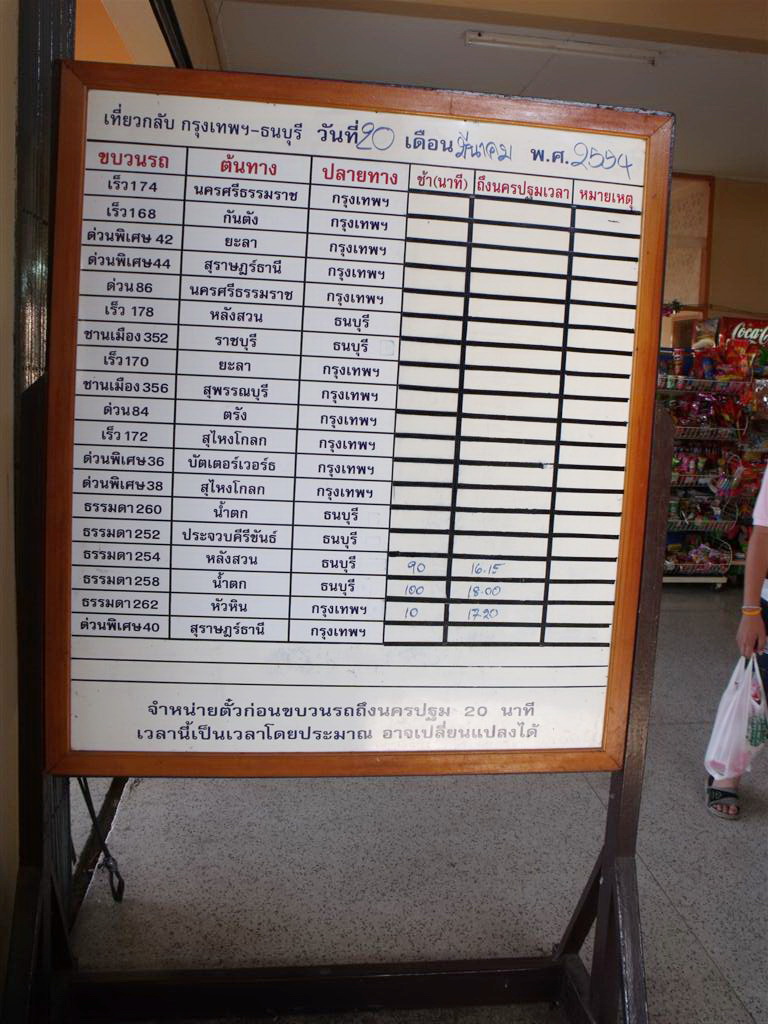 เที่ยวกลับ กรุงเทพฯ-ธนบุรี วันที่ 20 เดือน มีนาคม พ.ศ. 2554
ขบวนรถ ต้นทาง ปลายทาง ช้า(นาที) ถึงนครปฐมเวลา หมายเหตุ
เร็ว174 นครศรีธรรมราช กรุงเทพฯ
เร็ว168 กันตัง กรุงเทพฯ
ด่วนพิเศษ 42 ยะลา กรุงเทพฯ
ด่วนพิเศษ44 สุราษฎร์ธานี กรุงเทพฯ
ด่วน86 นครศรีธรรมราช กรุงเทพฯ
เร็ว 178 หลังสวน ธนบุรี
ชานเมือง352 ราชบุรี ธนบุรี
เร็ว170 ยะลา กรุงเทพฯ
ชานเมือง356 สุพรรณบุรี กรุงเทพฯ
ด่วน84 ตรัง กรุงเทพฯ
เร็ว 172 สุไหงโกลก กรุงเทพฯ
ด่วนพิเศษ36 บัตเตอร์เวอร์ธ กรุงเทพฯ
ด่วนพิเศษ38 สุไหงโกลก กรุงเทพฯ
ธรรมดา260 น้ำตก ธนบุรี
ธรรมดา252 ประจวบคีรีขันธ์ ธนบุรี
ธรรมดา254 หลังสวน ธนบุรี 90 16.15
ธรรมดา258 น้ำตก ธนบุรี 100 18.00
ธรรมดา262 หัวหิน กรุงเทพฯ 10 17.20
ด่วนพิเศษ40 สุราษฎร์ธานี กรุงเทพฯ
จำหน่ายตั๋วก่อนขบวนรถถึงนครปฐม 20 นาที
เวลานี้เป็นเวลาโดยประมาณ อาจเปลี่ยนแปลงได้
Coca